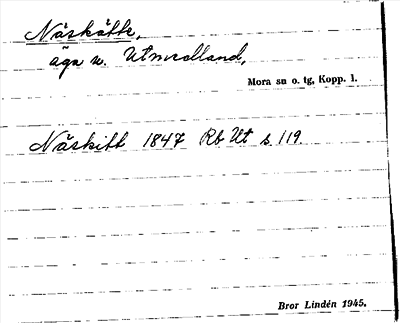 Näskätte,
äga v. Utmedland,
Mora su o. tg, Kopp. l.
Näskitt 1847 Rb Ut s 119.
Bror Lindén 1945.